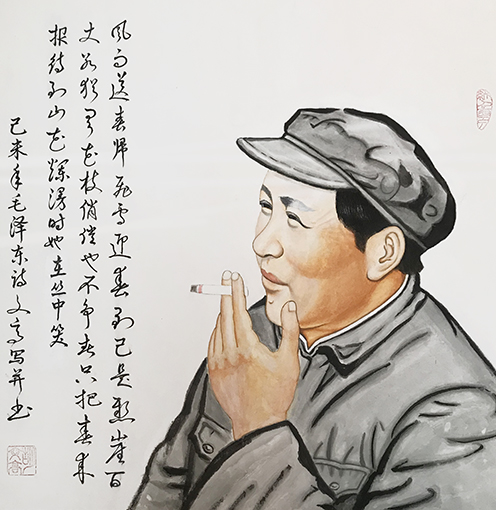 风雨送春归飞雪迎春到已是悬崖百
丈冰犹有花枝俏俏也不争春只把春来
报待到山花烂漫时她在丛中笑
己未年毛泽东诗文高写并书